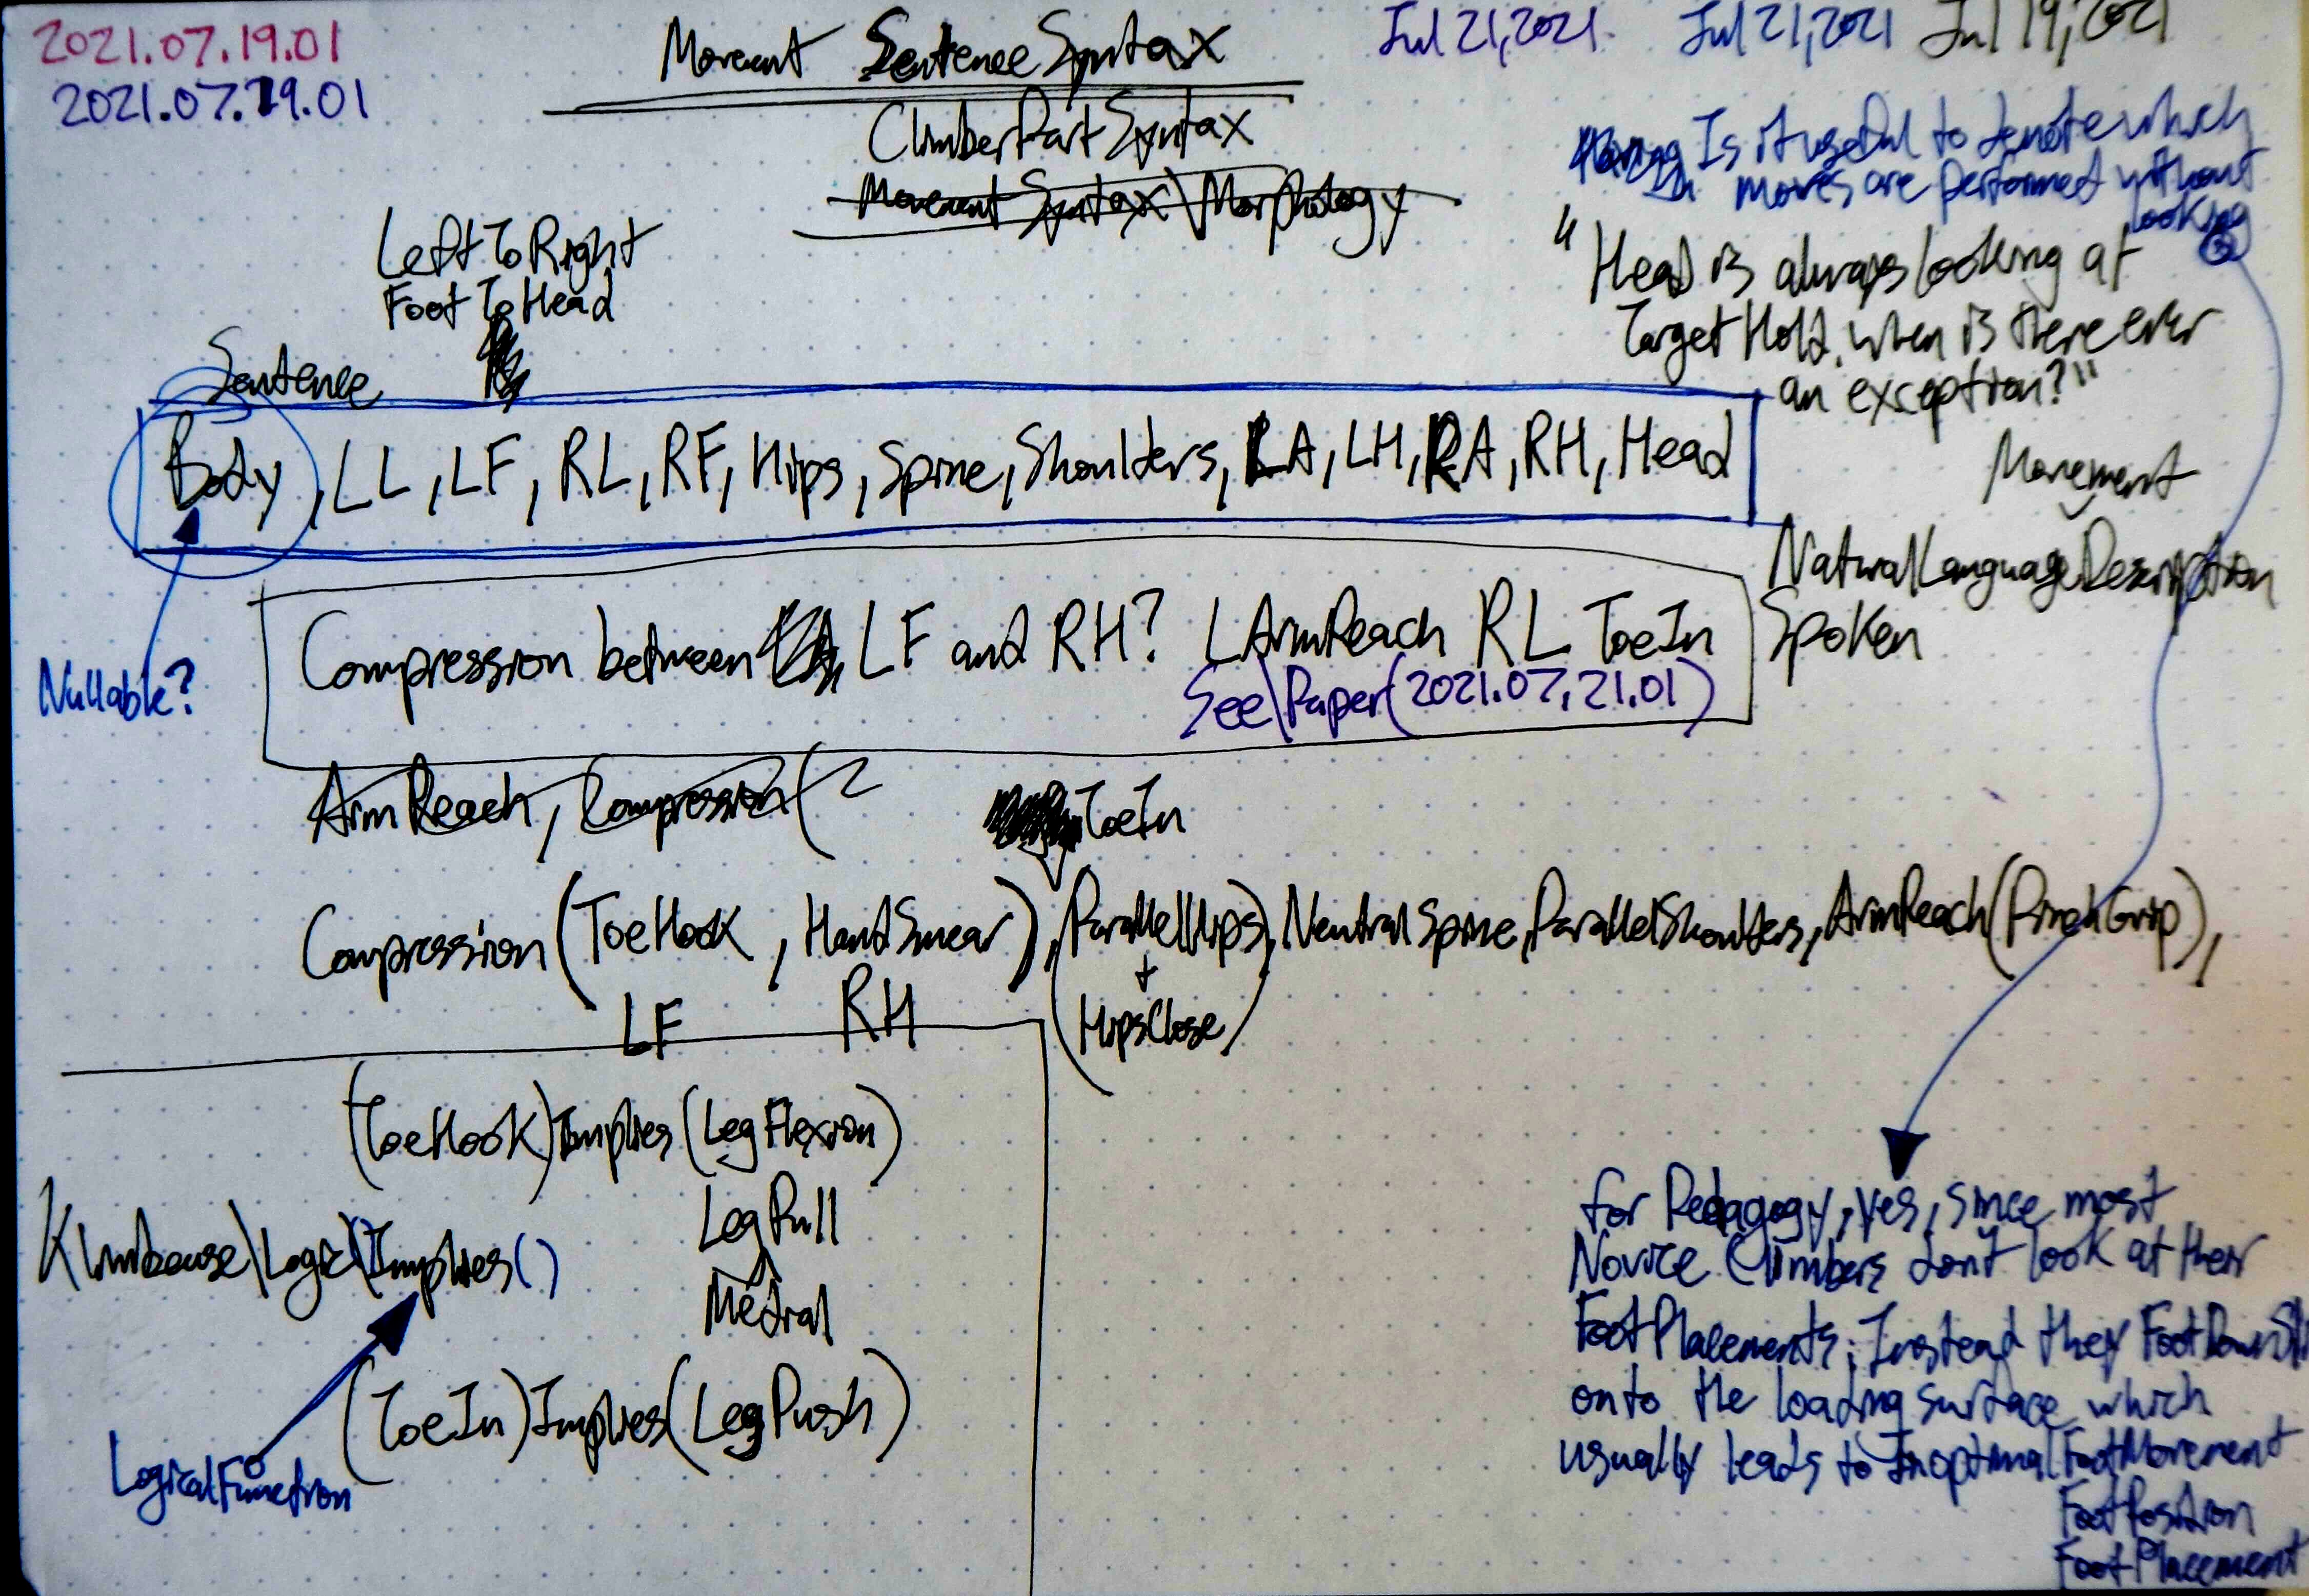 2021.07.19.01
2021.07.19.01
Movement SentenceSyntax
ClimberPartSyntax
Movement Syntax\Morphology
Jul 21, 2021
Jul 21, 2021
Jul 19, 2021
Is it useful to denote which
moves are performed without
looking
"Head is always looking at
Target Hold, when is there ever
an exception?"
LeftToRight
FootToHead
Sentence
Body, LL, LF, RL, RF, Hips, Spine, Shoulders, LA, LH, RA, RH, Head
Nullable?
Movement
NaturalLanguageDescription
Spoken
Compression between LF and RH? LArmReach RL ToeIn
See\Paper(2021.07.21.01)
ArmReach, Compression(
ToeIn
Compression(ToeHook, HandSmear), (ParallelHips), NeutralSpine, ParallelShoulders, ArmReach(PinchGrip),
LF RH
+
HipsClose)
(ToeHook)Implies(LegFlexion)
LegPull
Medial
Klimbeuse\Logic\Implies()
(ToeIn)Implies(LegPush)
LogicalFunction
for Pedagogy, yes, since most
Novice Climbers don't look at their
FootPlacements; Instead they
onto the loading surface which
usually leads to InoptimalFootMovement
FootPosition
FootPlacement